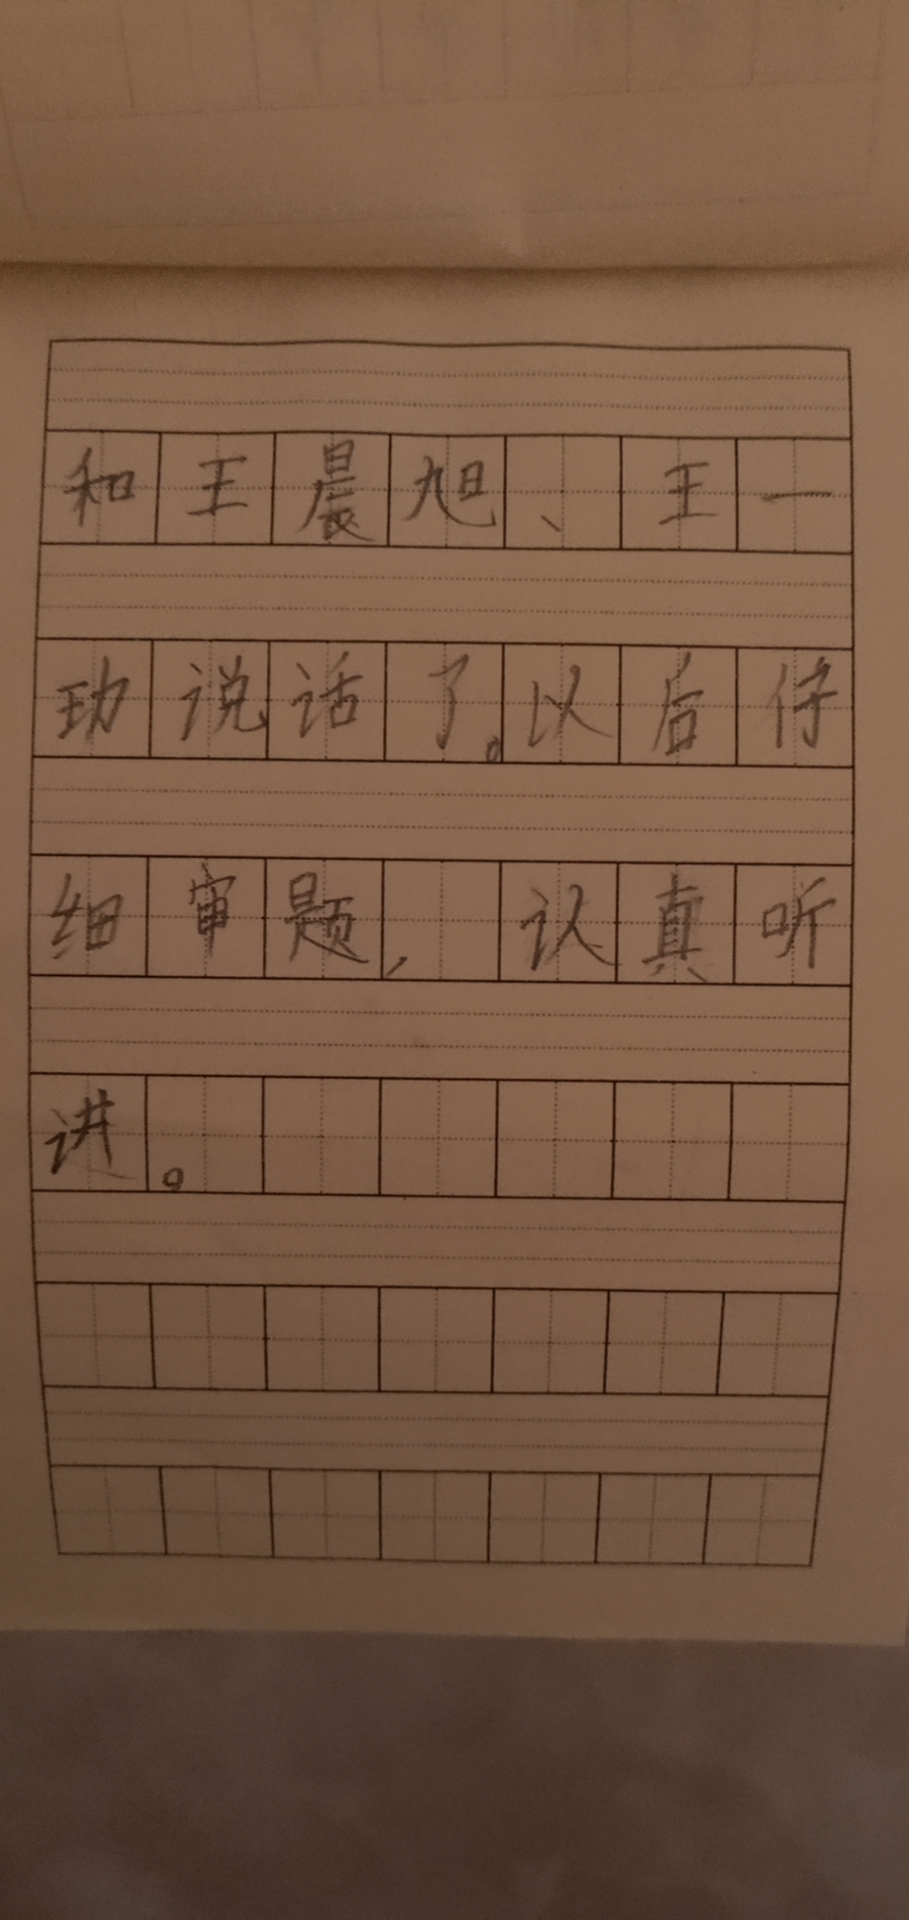 和王晨旭、王一
玏说话了。以后仔
细审题,认真听
讲。